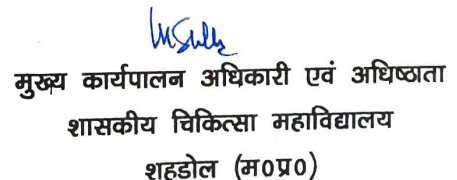 मुख्य कार्यपालन अधिकारी एवं अधिष्ठाता
शासकीय चिकित्सा महाविद्यालय
शहडोल (म०प्र०)